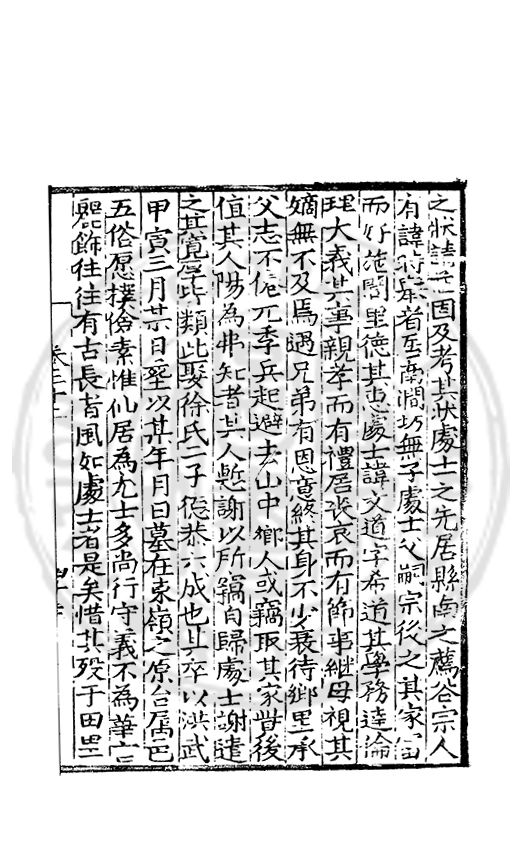 之狀請予因及考其狀處士之先居縣南之薦谷宗人
有諱時舉者至南澗坊無子處士父嗣宗後之其家富
而好施閭里德其惠處士諱文道字希道其學務達倫
理大義其事親孝而有禮居喪哀而有節事繼母視其
嫡無不及焉遇兄弟有恩意終其身不少衰待鄉里承
父志不倦元季兵起避去山中鄉人或竊取其家貲後
值其人陽為弗知者其人慙謝以所竊自歸處士謝遣
之其寬厚此類此娶徐氏二子德恭六成也其卒以洪武
甲寅三月廿日塟以其年月日墓在東嶺之原台屬邑
五俗愿撲儉素惟仙居為尤士多尚行守義不為華言
麗飾往往有古長者風如處士者是矣惜其歿于田里
卷二十二